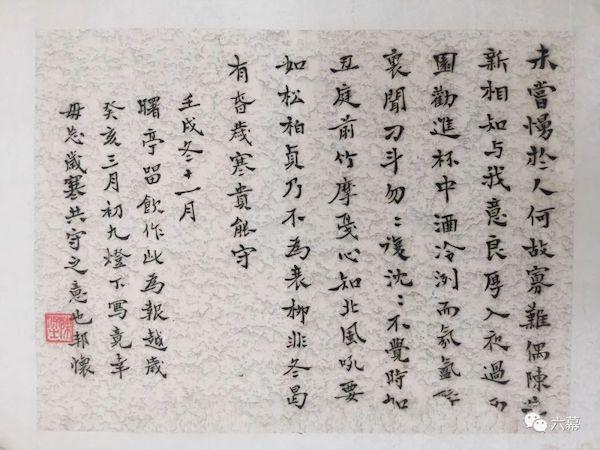 未嘗慢於人何故寡難偶陳
新相知与我意良厚入夜過
園勸進杯中酒冷冽而氛氳
裏聞刁斗勿〻復沈〻不覺時加
丑庭前竹摩戛心知北風吼要
如松柏貞乃不為衰柳非冬曷
有昏歲寒貴能守
壬戌冬十一月
曙亭留飲作此為報越歲
癸亥三月初九燈下寫竟幸
毋忘歲寒共守之意也邦懷
六幕